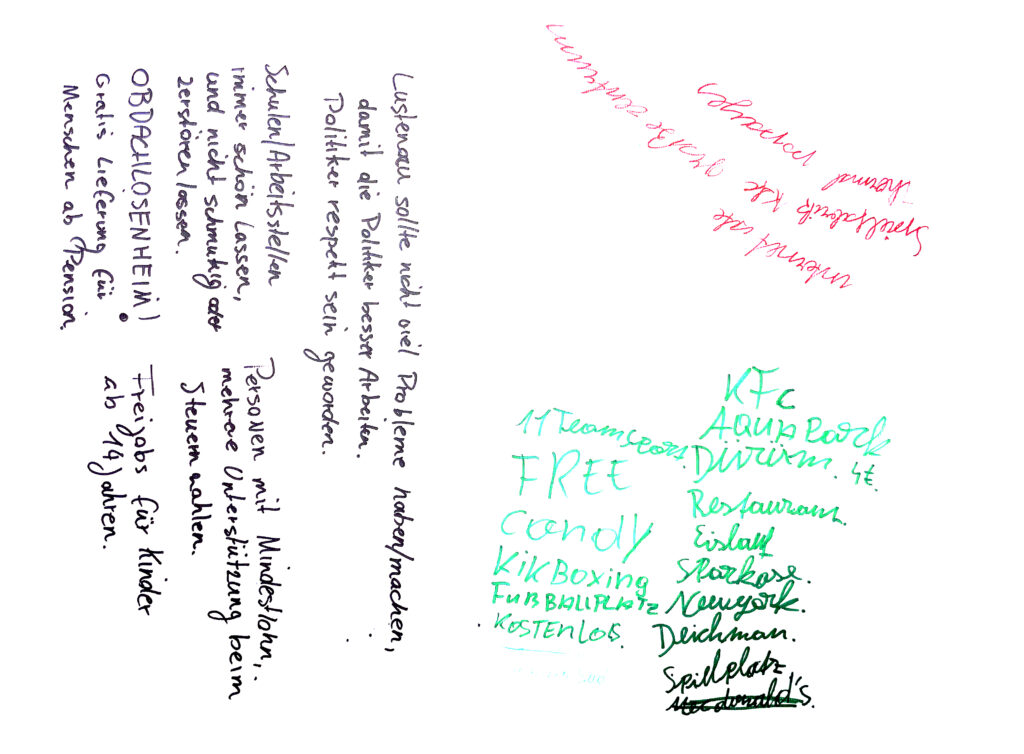 Lustenau sollte nicht viel Probleme haben/machen,
damit die Politiker besser Arbeiten.
Politiker respekt sein geworden.
Schulen/Arbeitsstellen
immer schön Lassen,
und nicht schmutzig oder
zerstören lassen.
OBDACHLOSENHEIM!
Gratis Lieferung für
Menschen ab Pension.
Personen mit Mindestlohn,
mehrere Unterstützung beim
Steuern
Freijobs für Kinder
ab 14 Jahren.
internet
Spielfabrik
große
11Teamsports
FREE
candy
KikBoxing
FUßBALLPLATZ
KOSTENLOS
KFC
AQUAPark
4€.
Restaurant
Eislauf
Sparkase.
Newyork.
Deichman.
Spillplatz